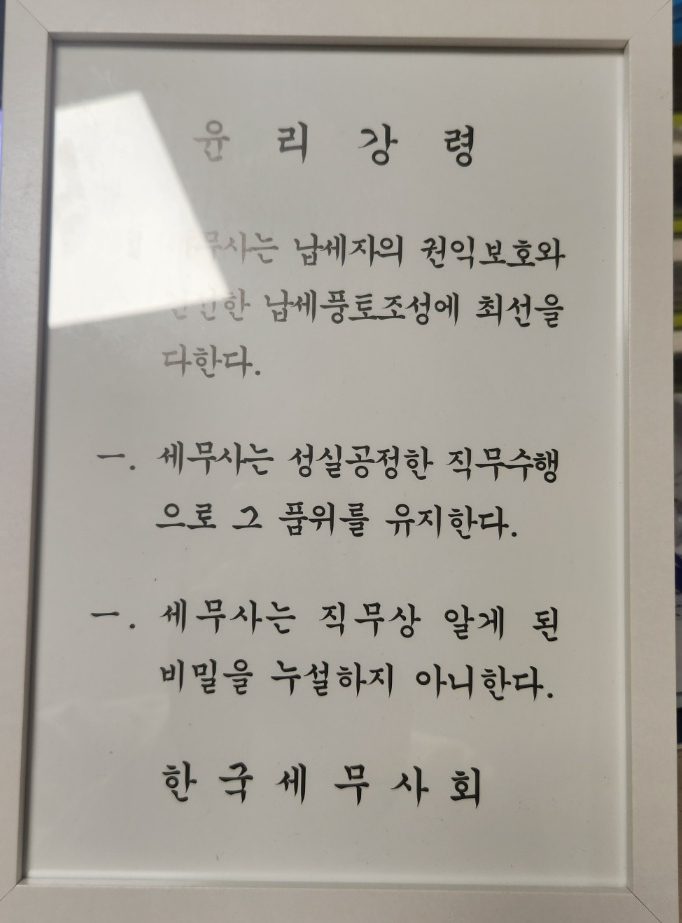 윤 리 강 령
세무사는 납세자의 권익보호와
납세풍토조성에 최선을
다한다.
一. 세무사는 성실공정한 직무수행
으로 그 품위를 유지한다.
一. 세무사는 직무상 알게 된
비밀을 누설하지 아니한다.
한 국 세 무 사 회